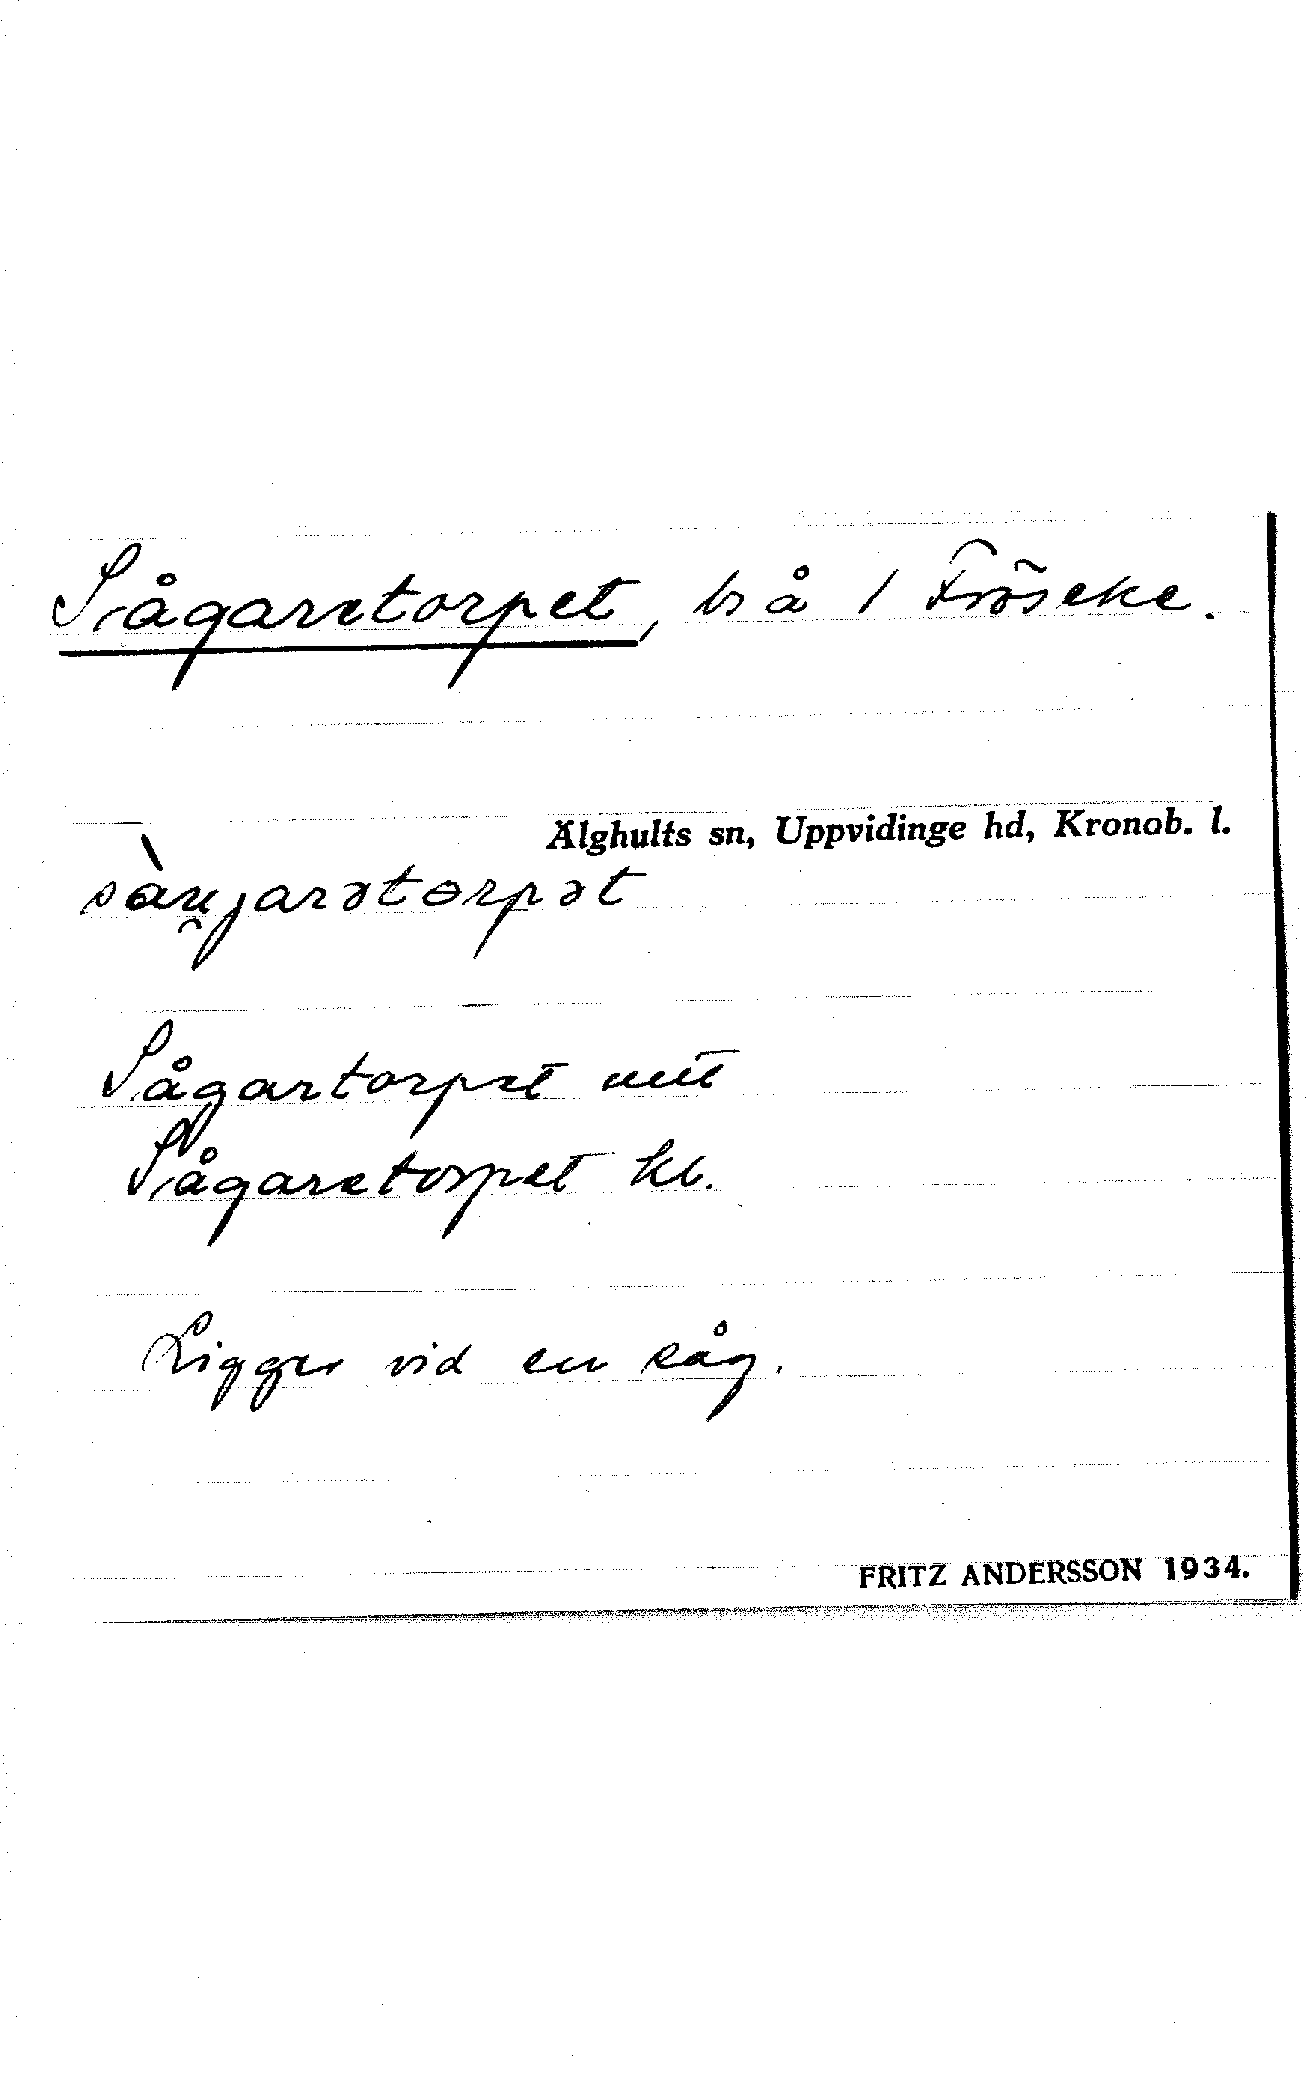 Sågaretorpet, bs å 1 Fröseke.
Älghults sn, Uppvidinge hd, Kronob. l.
Sågartorpet
Sågaretorpet kb.
Ligger vid en såg.
FRITZ ANDERSSON 1934.